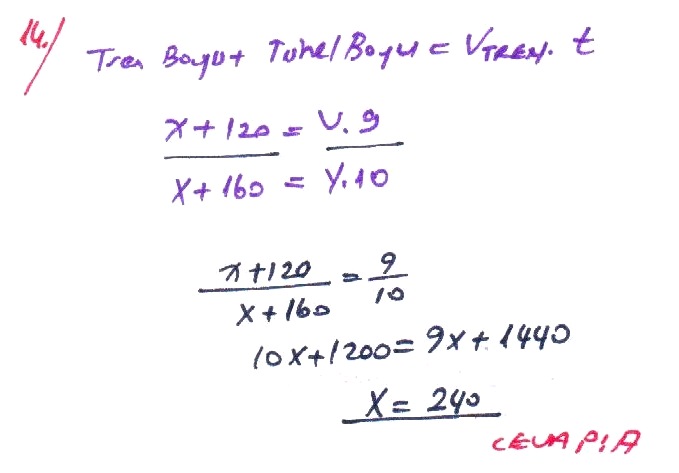 14./ Tren Boyu + Tünel Boyu = VTREN. t
x + 120 = V. 9
x + 160 = V. 10
x + 120 / x + 160 = 9 / 10
10x + 1200 = 9x + 1440
x = 240
CEVAP: A